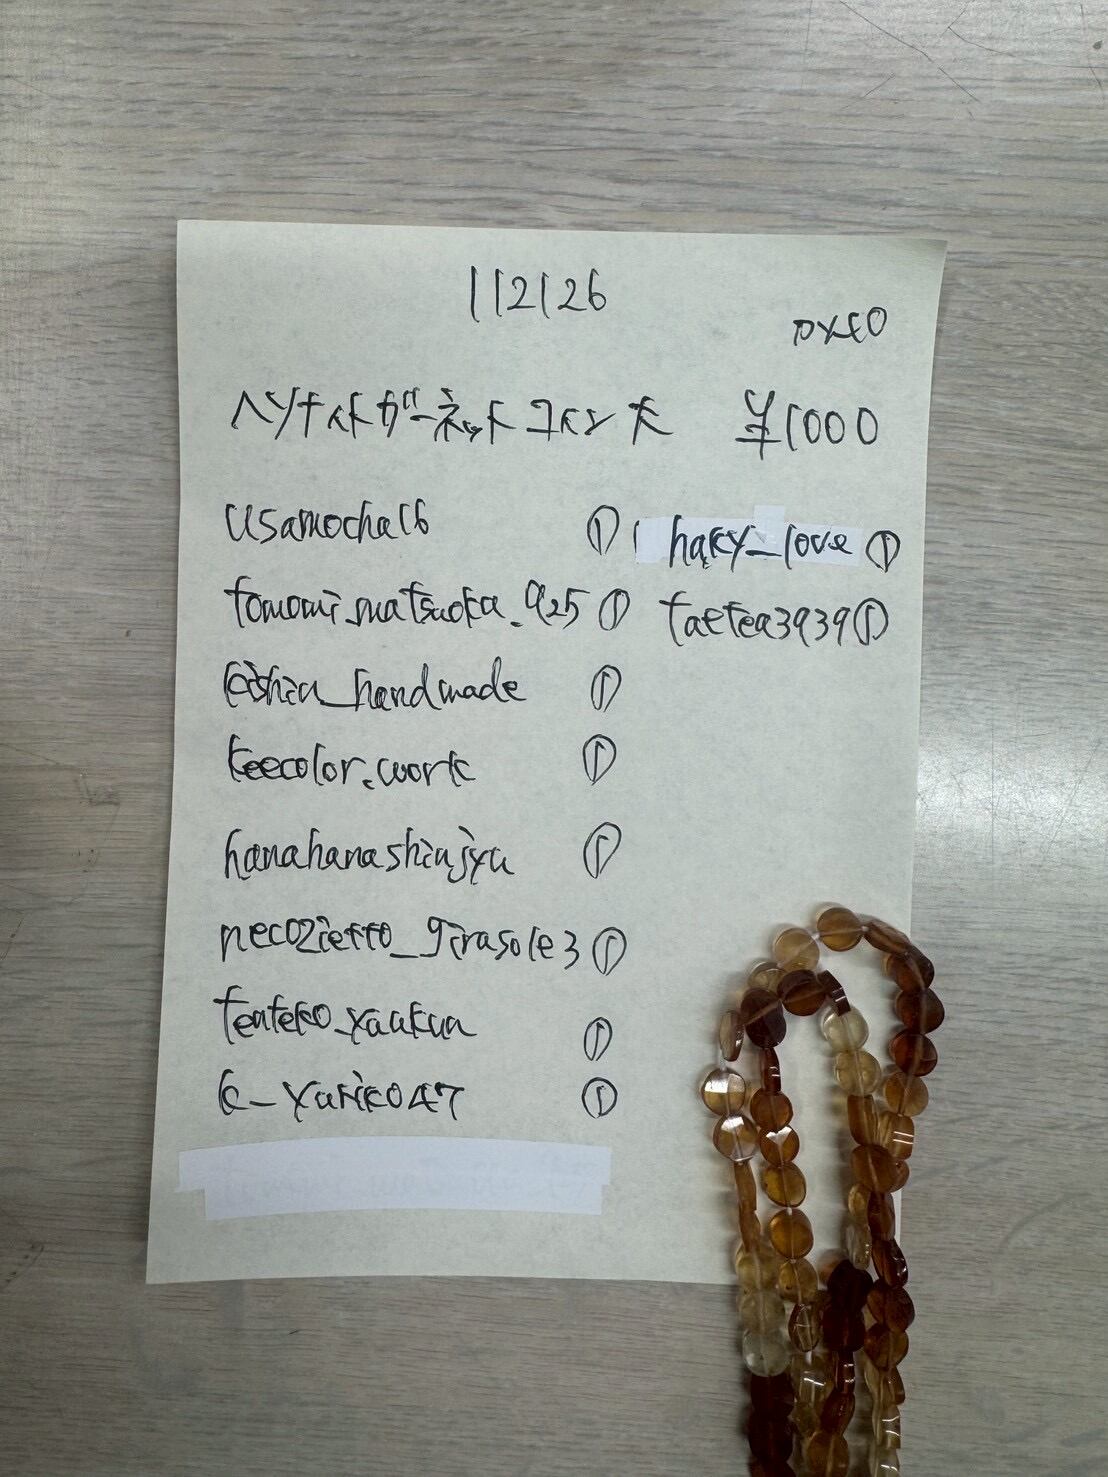 112126
ヘソナイトガーネットコイン大 ¥1000
usamocha16 ①
tomomi_matsuoka_925 ①
keishin_handmade ①
keecolor.work ①
hanahanashinjyu ①
necozietto_girasole3 ①
tenteko_yuukun ①
k_yuriko47 ①
haky_love ①
taetea3939 ①